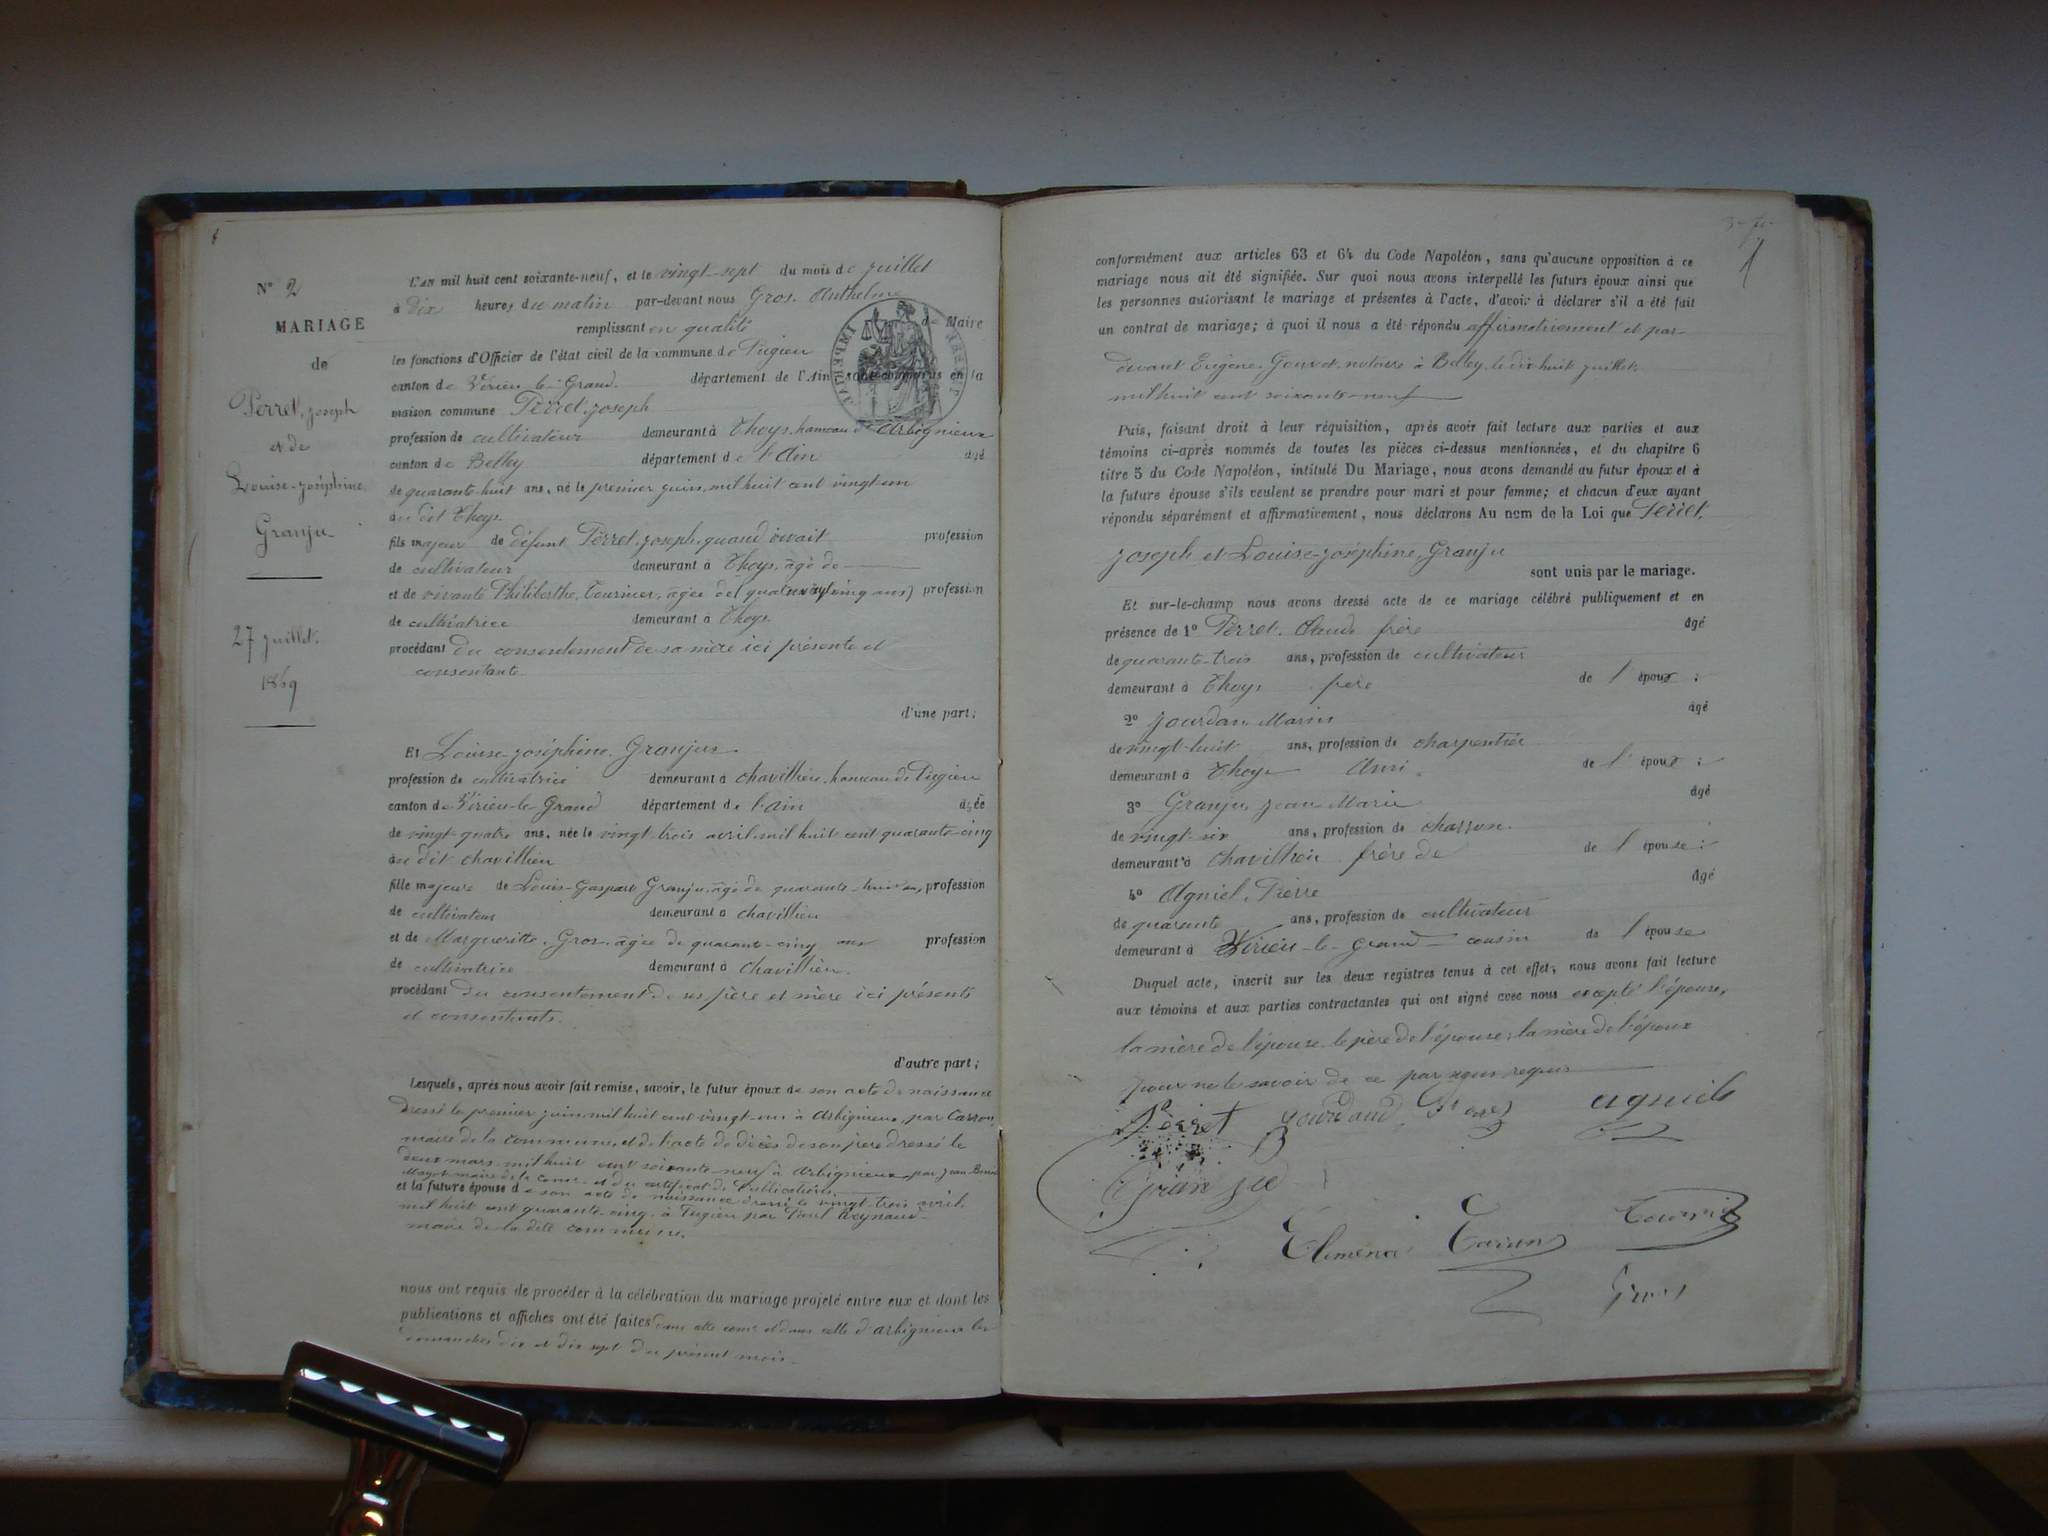 N° 2
MARIAGE
de
Perret, Joseph
et de
Louise-Joséphine
Granju
27 juillet
1869
L'AN mil huit cent soixante-neuf, et le vingt-sept du mois de juillet
à dix heures du matin par-devant nous Gros, Anthelme
remplissant en qualité de Maire
les fonctions d'Officier de l'état civil de la commune de Pugieu
canton de Virieu-le-Grand département de l'Ain sont comparus en la
maison commune Perret, Joseph
profession de cultivateur demeurant à Thoys, hameau d'Arbignieux
canton de Belley département de l'Ain âgé
de quarante-huit ans, né le premier juin, mil huit cent vingt-un
au dit Thoys
fils majeur de défunt Perret, Joseph, quand vivait profession
de cultivateur demeurant à Thoys, âgé de
et de vivante Philiberthe, Tournier, âgée de (quatre vingt cinq ans) profession
de cultivatrice demeurant à Thoys
procédant du consentement de sa mère ici présente et
consentante
d'une part;
Et Louise-Joséphine, Granju
profession de cultivatrice demeurant à Chavillieu, hameau de Pugieu
canton de Virieu-le-Grand département de l'Ain âgée
de vingt-quatre ans, née le vingt-trois avril, mil huit cent quarante-cinq
au dit Chavillieu
fille majeure de Louis-Gaspard Granju, âgé de quarante-huit ans, profession
de cultivateur demeurant à Chavillieu
et de Margueritte, Gros, âgée de quarante-cinq ans profession
de cultivatrice demeurant à Chavillieu.
procédant du consentement de ses père et mère ici présents
et consentants.
d'autre part;
Lesquels, après nous avoir fait remise, savoir, le futur époux de son acte de naissance
dressé le premier juin, mil huit cent vingt-un à Arbignieux, par
maire de la commune, et de l'acte de décès de son père dressé le
deux mars mil huit cent soixante-neuf à Arbignieux, par Jean-
maire de la et du certificat de Publications
et la future épouse de son acte de naissance dressé le vingt-trois avril,
mil huit cent quarante-cinq, à Pugieu par Paul Reynaud
maire de la dite commune.
nous ont requis de procéder à la célébration du mariage projeté entre eux et dont les
publications et affiches ont été faites dans cette comne et dans celle d'Arbignieux les
dimanches dix et dix sept du présent mois.
conformément aux articles 63 et 64 du Code Napoléon, sans qu'aucune opposition à ce
mariage nous ait été signifiée. Sur quoi nous avons interpellé les futurs époux ainsi que
les personnes autorisant le mariage et présentes à l'acte, d'avoir à déclarer s'il a été fait
un contrat de mariage; à quoi il nous a été répondu affirmativement et par-
devant Eugène notaire à Belley, le dix huit juillet,
mil huit cent soixante-neuf
Puis, faisant droit à leur réquisition, après avoir fait lecture aux parties et aux
témoins ci-après nommés de toutes les pièces ci-dessus mentionnées, et du chapitre 6
titre 5 du Code Napoléon, intitulé Du Mariage, nous avons demandé au futur époux et à
la future épouse s'ils veulent se prendre pour mari et pour femme; et chacun d'eux ayant
répondu séparément et affirmativement, nous déclarons Au nom de la Loi que Perret,
Joseph et Louise-Joséphine, Granju
sont unis par le mariage.
Et sur-le-champ nous avons dressé acte de ce mariage célébré publiquement et en
présence de 1° Perret, Claude frère âgé
de quarante-trois ans, profession de cultivateur
demeurant à Thoys frère de l'époux;
2° Jourdan, Marin âgé
de vingt-huit ans, profession de charpentier
demeurant à Thoys Ami de l'époux;
3° Granju, Jean-Marie âgé
de vingt-six ans, profession de charron
demeurant à Chavillieu frère de de l'épouse;
4° Agniel, Pierre âgé
de quarante ans, profession de cultivateur
demeurant à Virieu-le-Grand cousin de l'épouse
Duquel acte, inscrit sur les deux registres tenus à cet effet, nous avons fait lecture
aux témoins et aux parties contractantes qui ont signé avec nous excepté l'épouse,
la mère de l'épouse, le père de l'épouse; la mère de l'époux
pour ne le savoir de ce par nous requis
Perret Jourdand agniel
Granju
Tournier
Gros